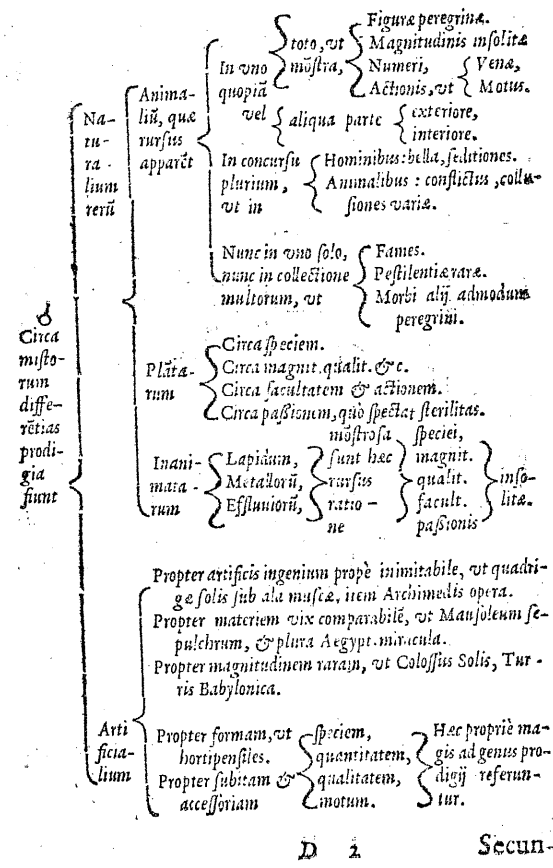 ♉
Circa
misto-
rum
differ-
rētias
prodi-
gia
fiunt
Na-
tu-
ra-
lium
rerū
Anima-
liū, quæ
rursus
apparēt
In vno
quopiā
vel
toto, vt
mōstra,
Figuræ peregrinæ.
Magnitudinis insolitæ
Numeri,
Actionis, vt
Venæ,
Motus.
aliqua parte
exteriore,
interiore.
In concursu
plurium,
vt in
Hominibus: bella, seditiones.
Animalibus: conflictus, collu-
siones variæ.
Nunc in vno solo,
nunc in collectione
multorum, vt
Fames.
Pestilentiæ raræ.
Morbi alij admodum
peregrini.
Plātā-
rum
Circa speciem.
Circa magnit. qualit. &c.
Circa facultatem & actionem.
Circa passionem, quò spectat sterilitas.
Inani-
mata-
rum
Lapidum,
Metallorū,
Effluuiorū,
mōstrosa
sunt hæc
rursus
ratio-
ne
speciei,
magnit.
qualit.
facult.
passionis
inso-
litæ.
Arti
ficia-
lium
Propter artificis ingenium propè inimitabile, vt quadri-
gæ solis sub ala muscæ, item Archimedis opera.
Propter materiem vix comparabilē, vt Mausoleum se-
pulchrum, & plura Aegypt. miracula.
Propter magnitudinem raram, vt Colossus Solis, Tur-
ris Babylonica.
Propter formam, vt
hortipensiles.
Propter subitam &
accessoriam
speciem,
quantitatem,
qualitatem,
motum.
Hæc propriè ma-
gis ad genus pro-
digij referun-
tur.
D 2 Secun-